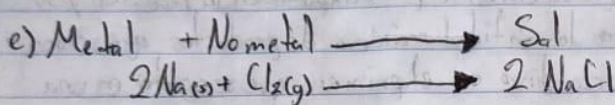 e) Metal + No metal ⟶ Sal
2Na(s) + Cl2(g) ⟶ 2 NaCl